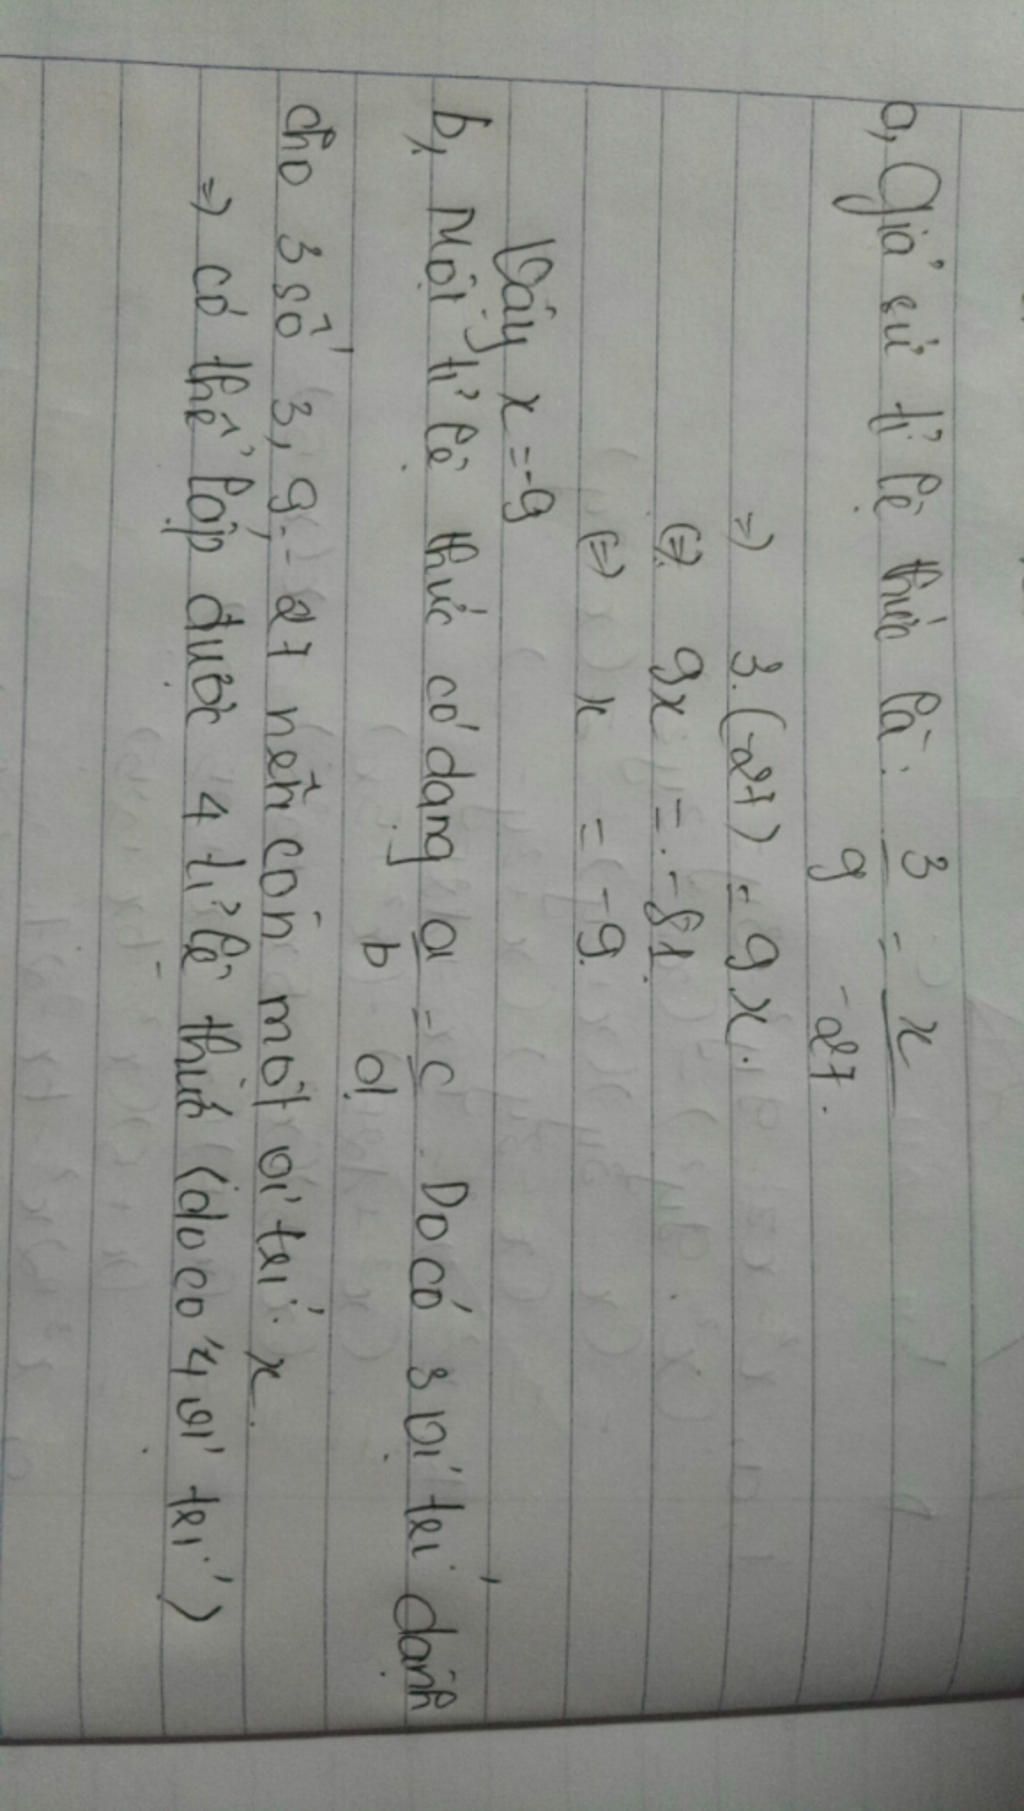 a, Giả sử tỉ lệ thức là: 3/9 = x/-27.
=> 3.(-27) = 9x.
(=) 9x = -81.
(=) x = -9.
Vậy x = -9
b, Một tỉ lệ thức có dạng a/b = c/d. Do có 3 vị trí dành
cho 3 số 3, 9, -27 nên còn một vị trí x.
=> có thể lập được 4 tỉ lệ thức (do có 4 vị trí)